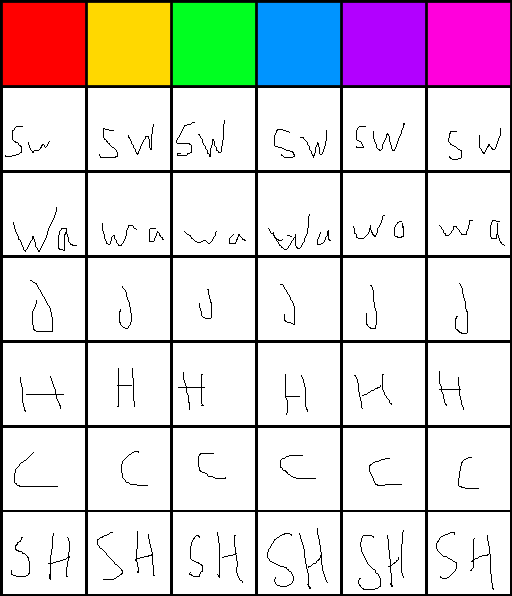 Sw SW SW SW SW SW
Wa wa wa Wa wo wa
J J J J J J
H H H H H H
C C C C C C
SH SH SH SH SH SH